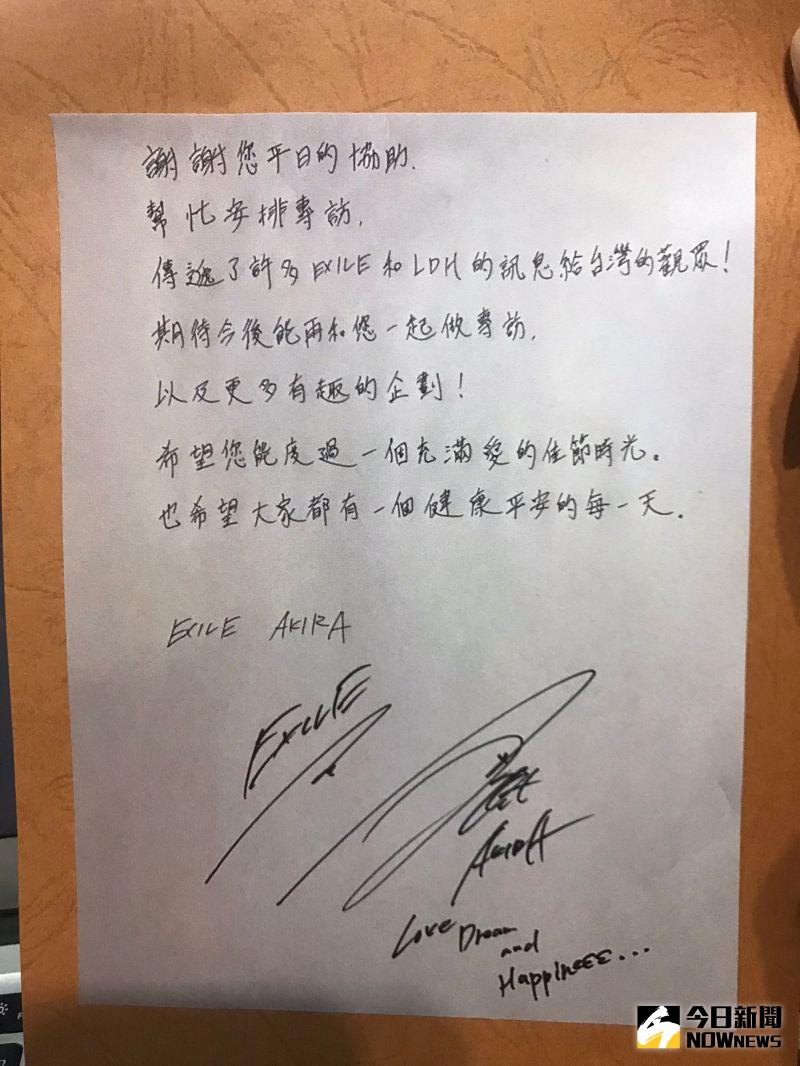 謝謝您平日的協助.
幫忙安排專訪.
傳遞了許多EXILE和LDH的訊息給台灣的觀眾!
期待今後能再和您一起做專訪.
以及更多有趣的企劃!
希望您能度過一個充滿愛的佳節時光。
也希望大家都有一個健康平安的每一天.
EXILE AKIRA
EXILE
AKIRA
Love Dream
and
Happiness...
今日新聞
NOWNEWS